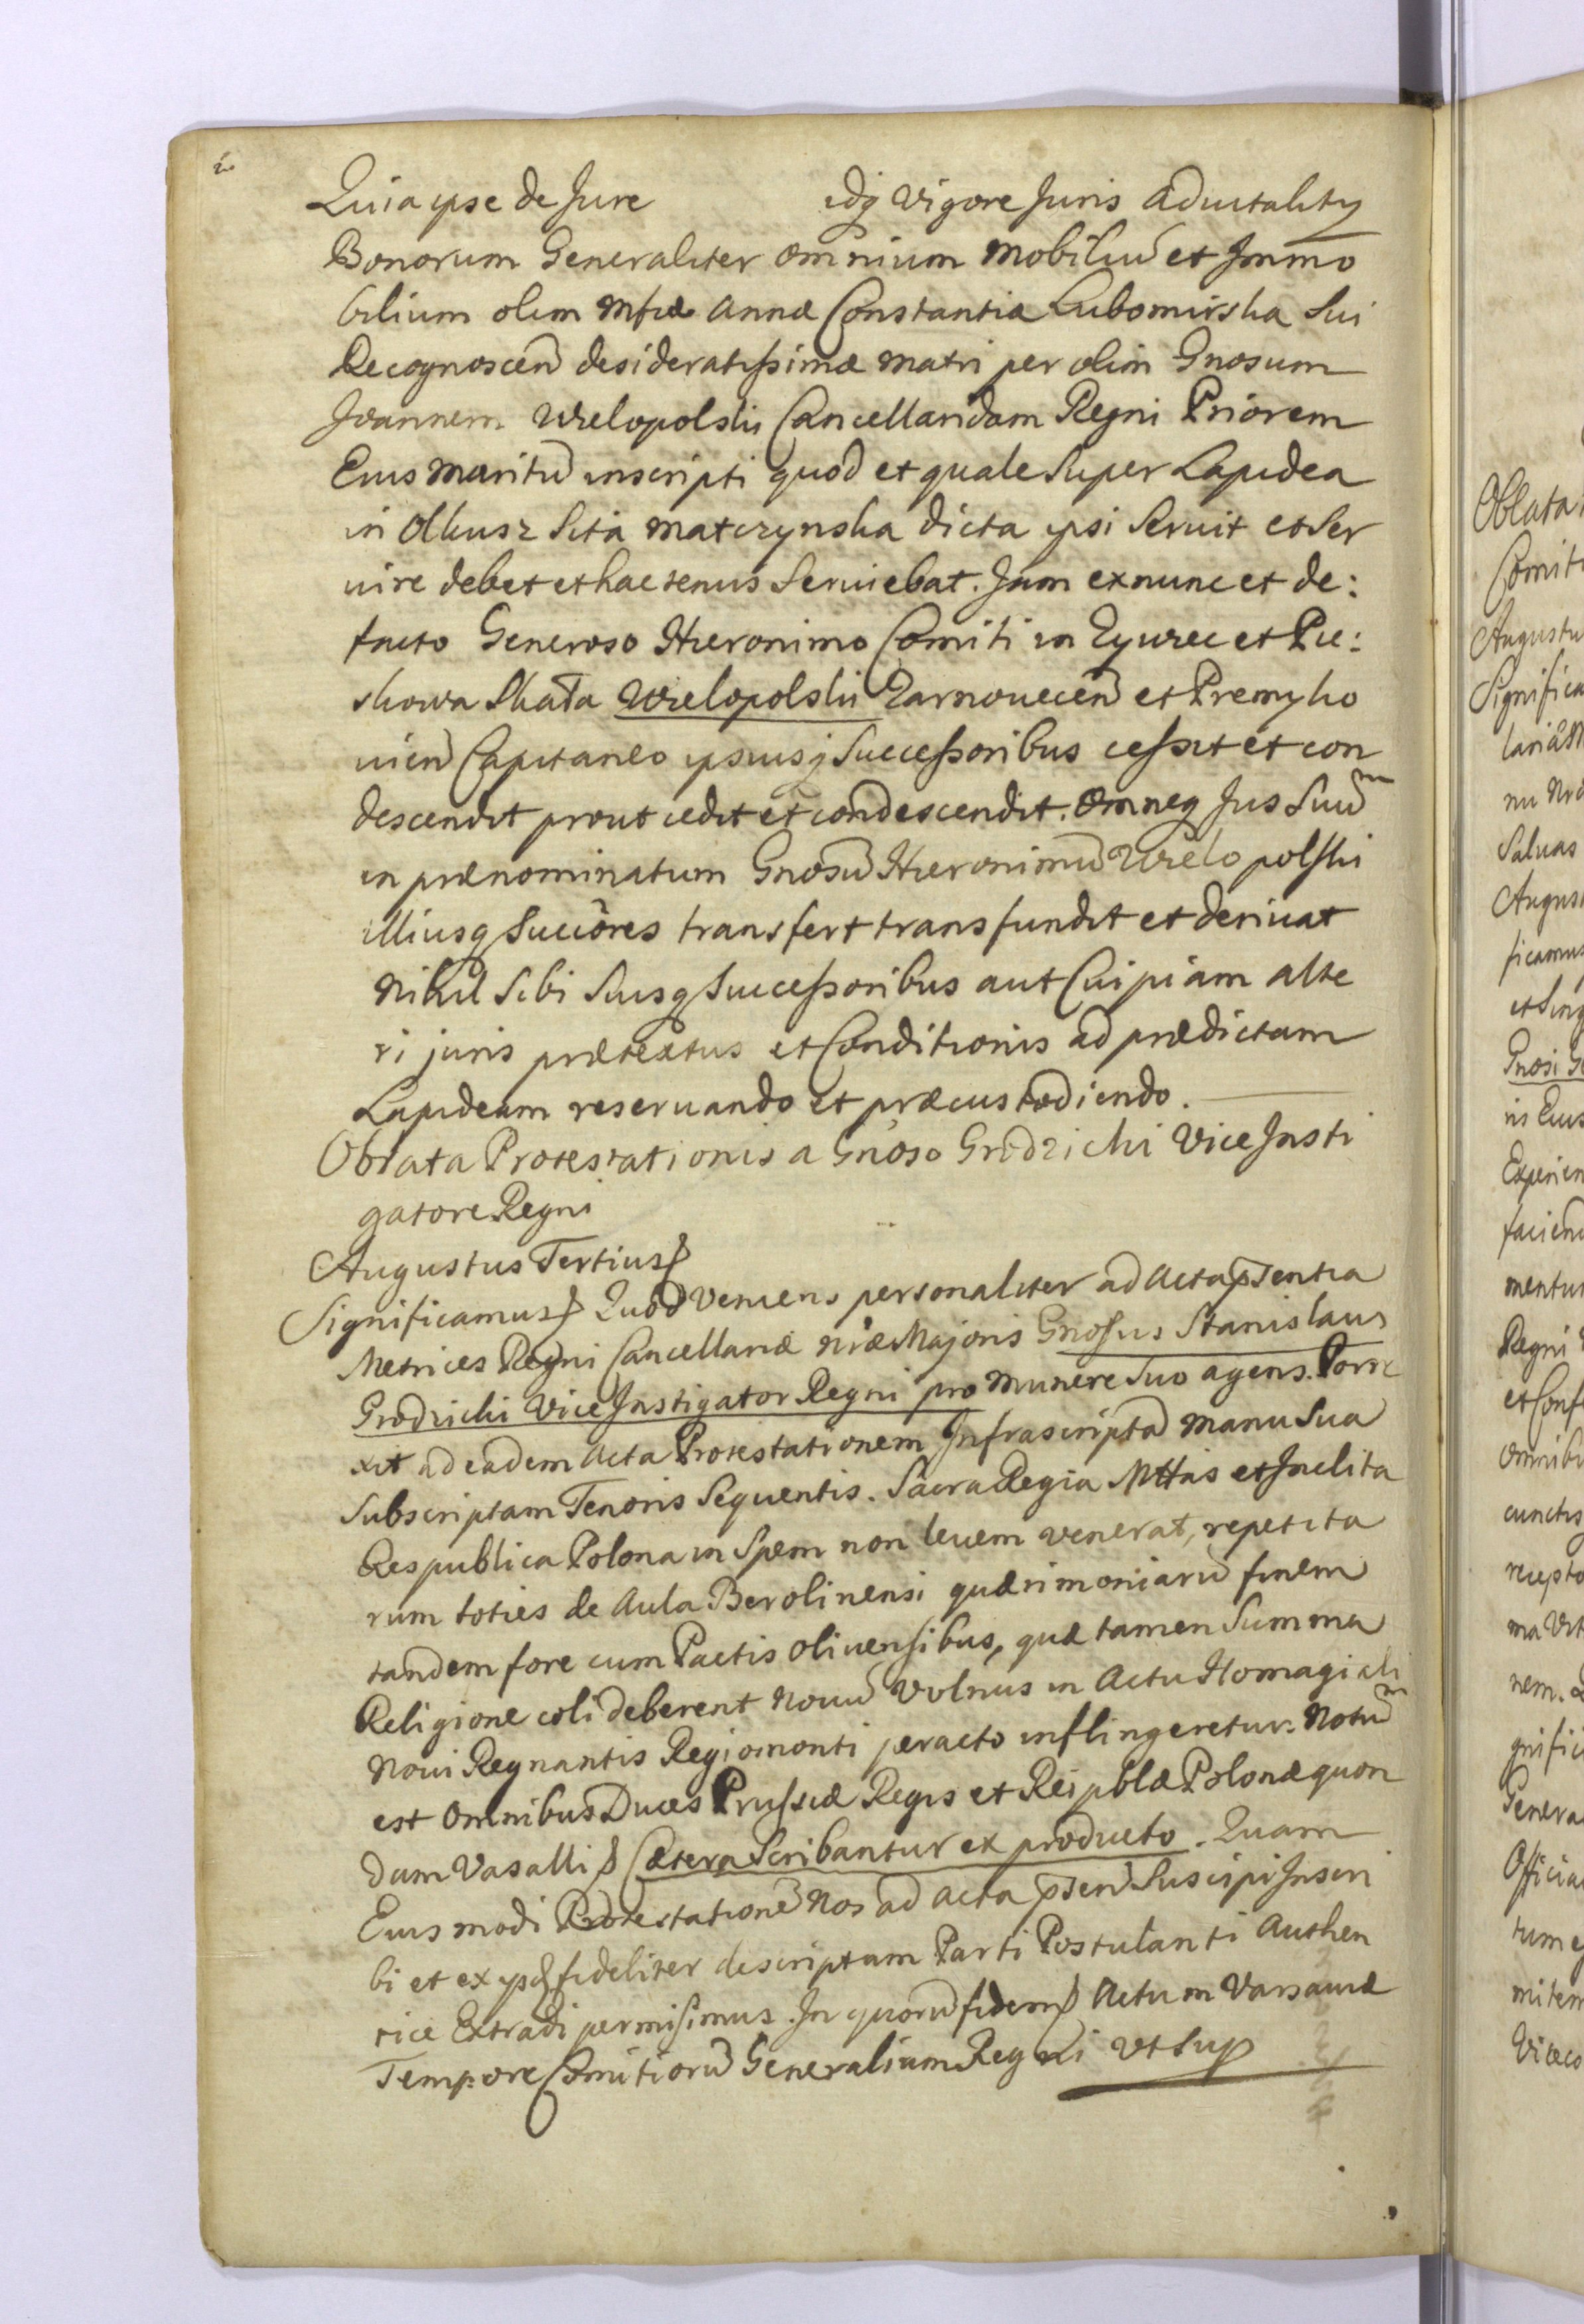 2.
Quia ipse de Jure idq Vigore Juris Aduitalitis
Bonorum Generaliter omnium Mobiliu et Jmmo
bilium olim Mfcæ Annæ Constantia Lubomirska Sui
Recognoscen desideratissimæ Matri per olim Gnosum
Joannem Wielopolski Cancellaridam Regni Priorem
Eius Maritu inscripti quod et quale Super Lapidea
in Olkusz Sita Matczynska dicta ipsi Seruit et Ser
uire debet et hactenus Seruiebat. Jam exnunc et de:
facto Generoso Hieronimo Comiti in Zywiec et Pie:
skowa Skała Wielopolski Zarnouecen et Premyko
uien Capitaneo ipsiusq Successoribus cessit et con
descendit prout cedit et condescendit. Omneq Jus Suu
in prænominatum Gnosu Hieronimu Wielopolski
illiusq Succores transfert transfundit et deriuat
Nihil Sibi Suisq Successoribus aut Cuipiam alte
ri juris prætextus et Conditionis ad prædictam
Lapideam reseruando et præcustodiendo.
Oblata Protestationis a Gnoso Grodzicki Vice Insti
gatore Regni
Augustus Tertius
Significamus Quod Veniens personaliter ad Acta psentia
Metrices Regni Cancellariæ Nræ Majoris Gnosus Stanislaus
Grodzicki Vice Instigator Regni pro Munere Suo agens. Porre
xit ad eadem Acta Protestationem Infrascripta Manu Sua
Subscriptam Tenoris Sequentis. Sacra Regia Mttas et Inclita
Respublica Polona in Spem non leuem venerat, repetita
rum toties de Aula Berolinensi quærimoniaru finem
tandem fore cum Pactis Oliuensibus, quæ tamen Summa
Religione coli deberent Nouu Volnus in Actu Homagiali
Noui Regnantis Regiomonti peracto inflingeretur. Notu
est Omnibus Duces Prussiæ Regis et Reipblæ Polonæ quon
dam Vasalli Cætera Scribantur ex producto. Quam
Eius modi Protestatione Nos ad Acta psen Suscipi Inscri
bi et ex ijsd fideliter descriptam Parti Postulanti Authen
tice Extradi permisimus. In quoru fidem Actum Varsauiæ
Tempore Comitioru Generalium Regni Vt Sup
Oblata
Comit
Augustu
Significa
Saluas
ficamus
Gnosi
Experien
Regni
et Conf
cunctis
nem.
Genera